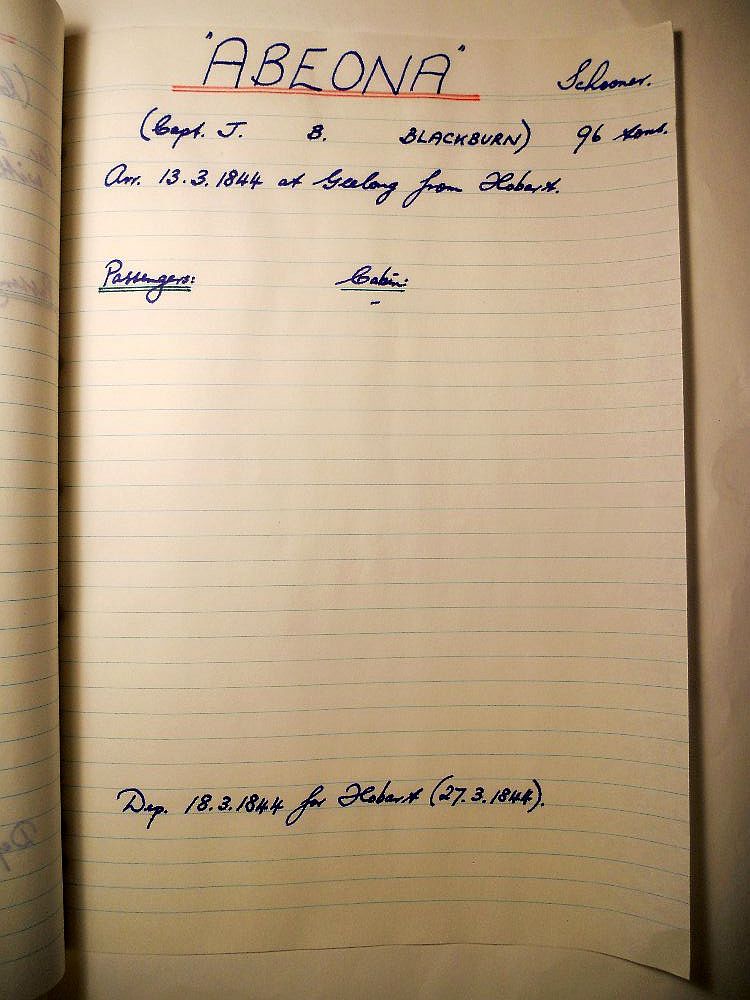 "ABEONA" Schooner.
(Capt. J. B. BLACKBURN) 96 tons.
Arr. 13.3.1844 at Geelong from Hobart.
Passengers: Cabin:
-
Dep. 18.3.1844 for Hobart (27.3.1844).